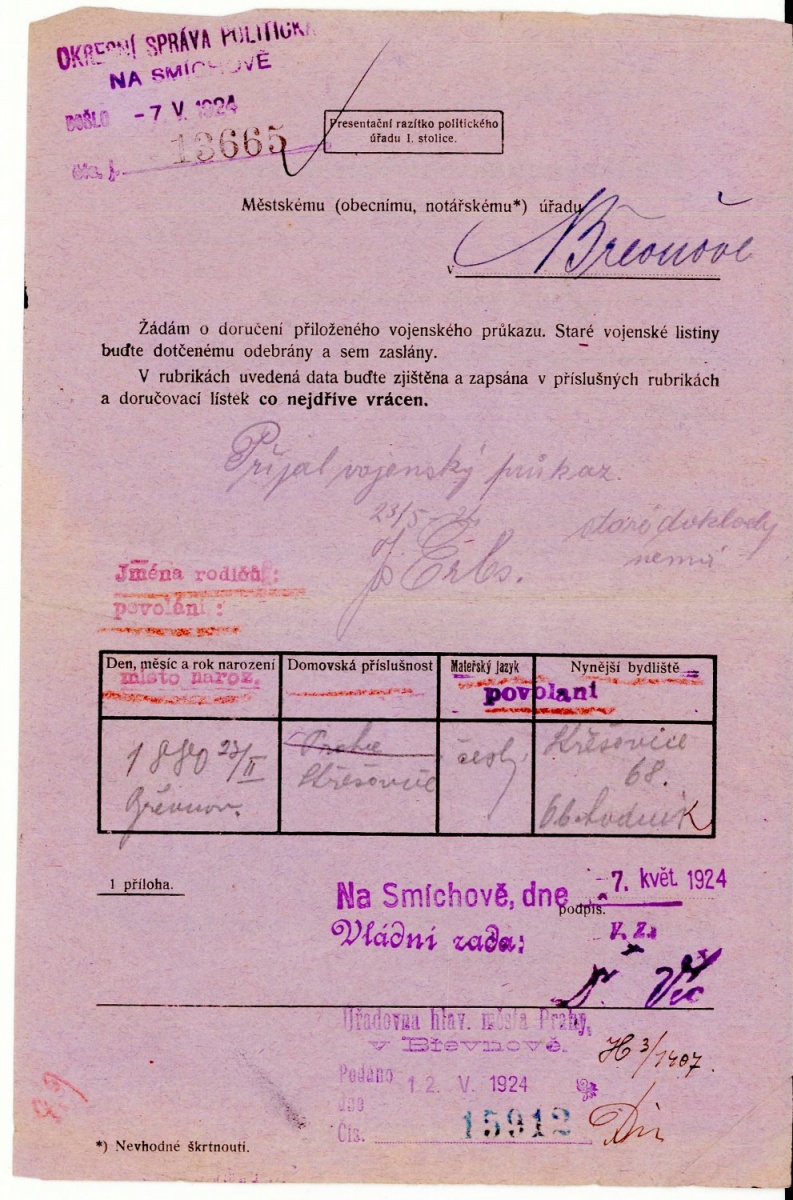 OKRESNÍ SPRÁVA POLITICKÁ
NA SMÍCHOVĚ
DOŠLO -7 V. 1924
13665
Presentační razítko politického
úřadu I. stolice.
Městskému (obecnímu, notářskému*) úřadu
v Břevnově
Žádám o doručení přiloženého vojenského průkazu. Staré vojenské listiny
buďte dotčenému odebrány a sem zaslány.
V rubrikách uvedená data buďte zjištěna a zapsána v příslušných rubrikách
a doručovací lístek co nejdříve vrácen.
Přijal vojenský průkaz.
23/5
staré doklady
nemá
J. Erbs.
Jména rodičů:
povolání:
Den, měsíc a rok narození
místo naroz.
Domovská příslušnost
Mateřský jazyk
Nynější bydliště
povolaní
1880 23/II
Břevnov.
Praha
Střešovice
český
Střešovice
68.
Obchodník
1 příloha.
Na Smíchově, dne -7. květ 1924
podpis.
Vládní rada:
V. z.
Úřadovna hlav. města Prahy,
v Břevnově.
H 3/1407.
Podáno
dne
12. V. 1924
Čís. 15912
*) Nevhodné škrtnouti.